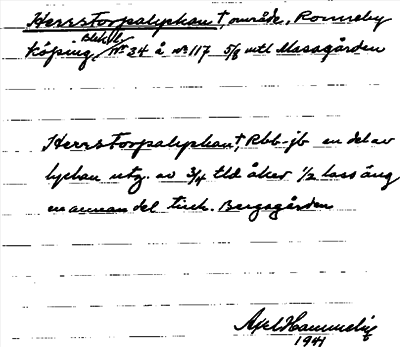 Herrstorpalyckan †, område, Ronneby
Köping, Blek. l. № 34 å № 117 5/8 mtl Massagården
Herrstorpalyckan †, Rbb-jb en del av
lyckan utg. av 3/4 tld åker 1/2 lass äng
en annan del tuch. Bergagården
Axel Hammelig
1941